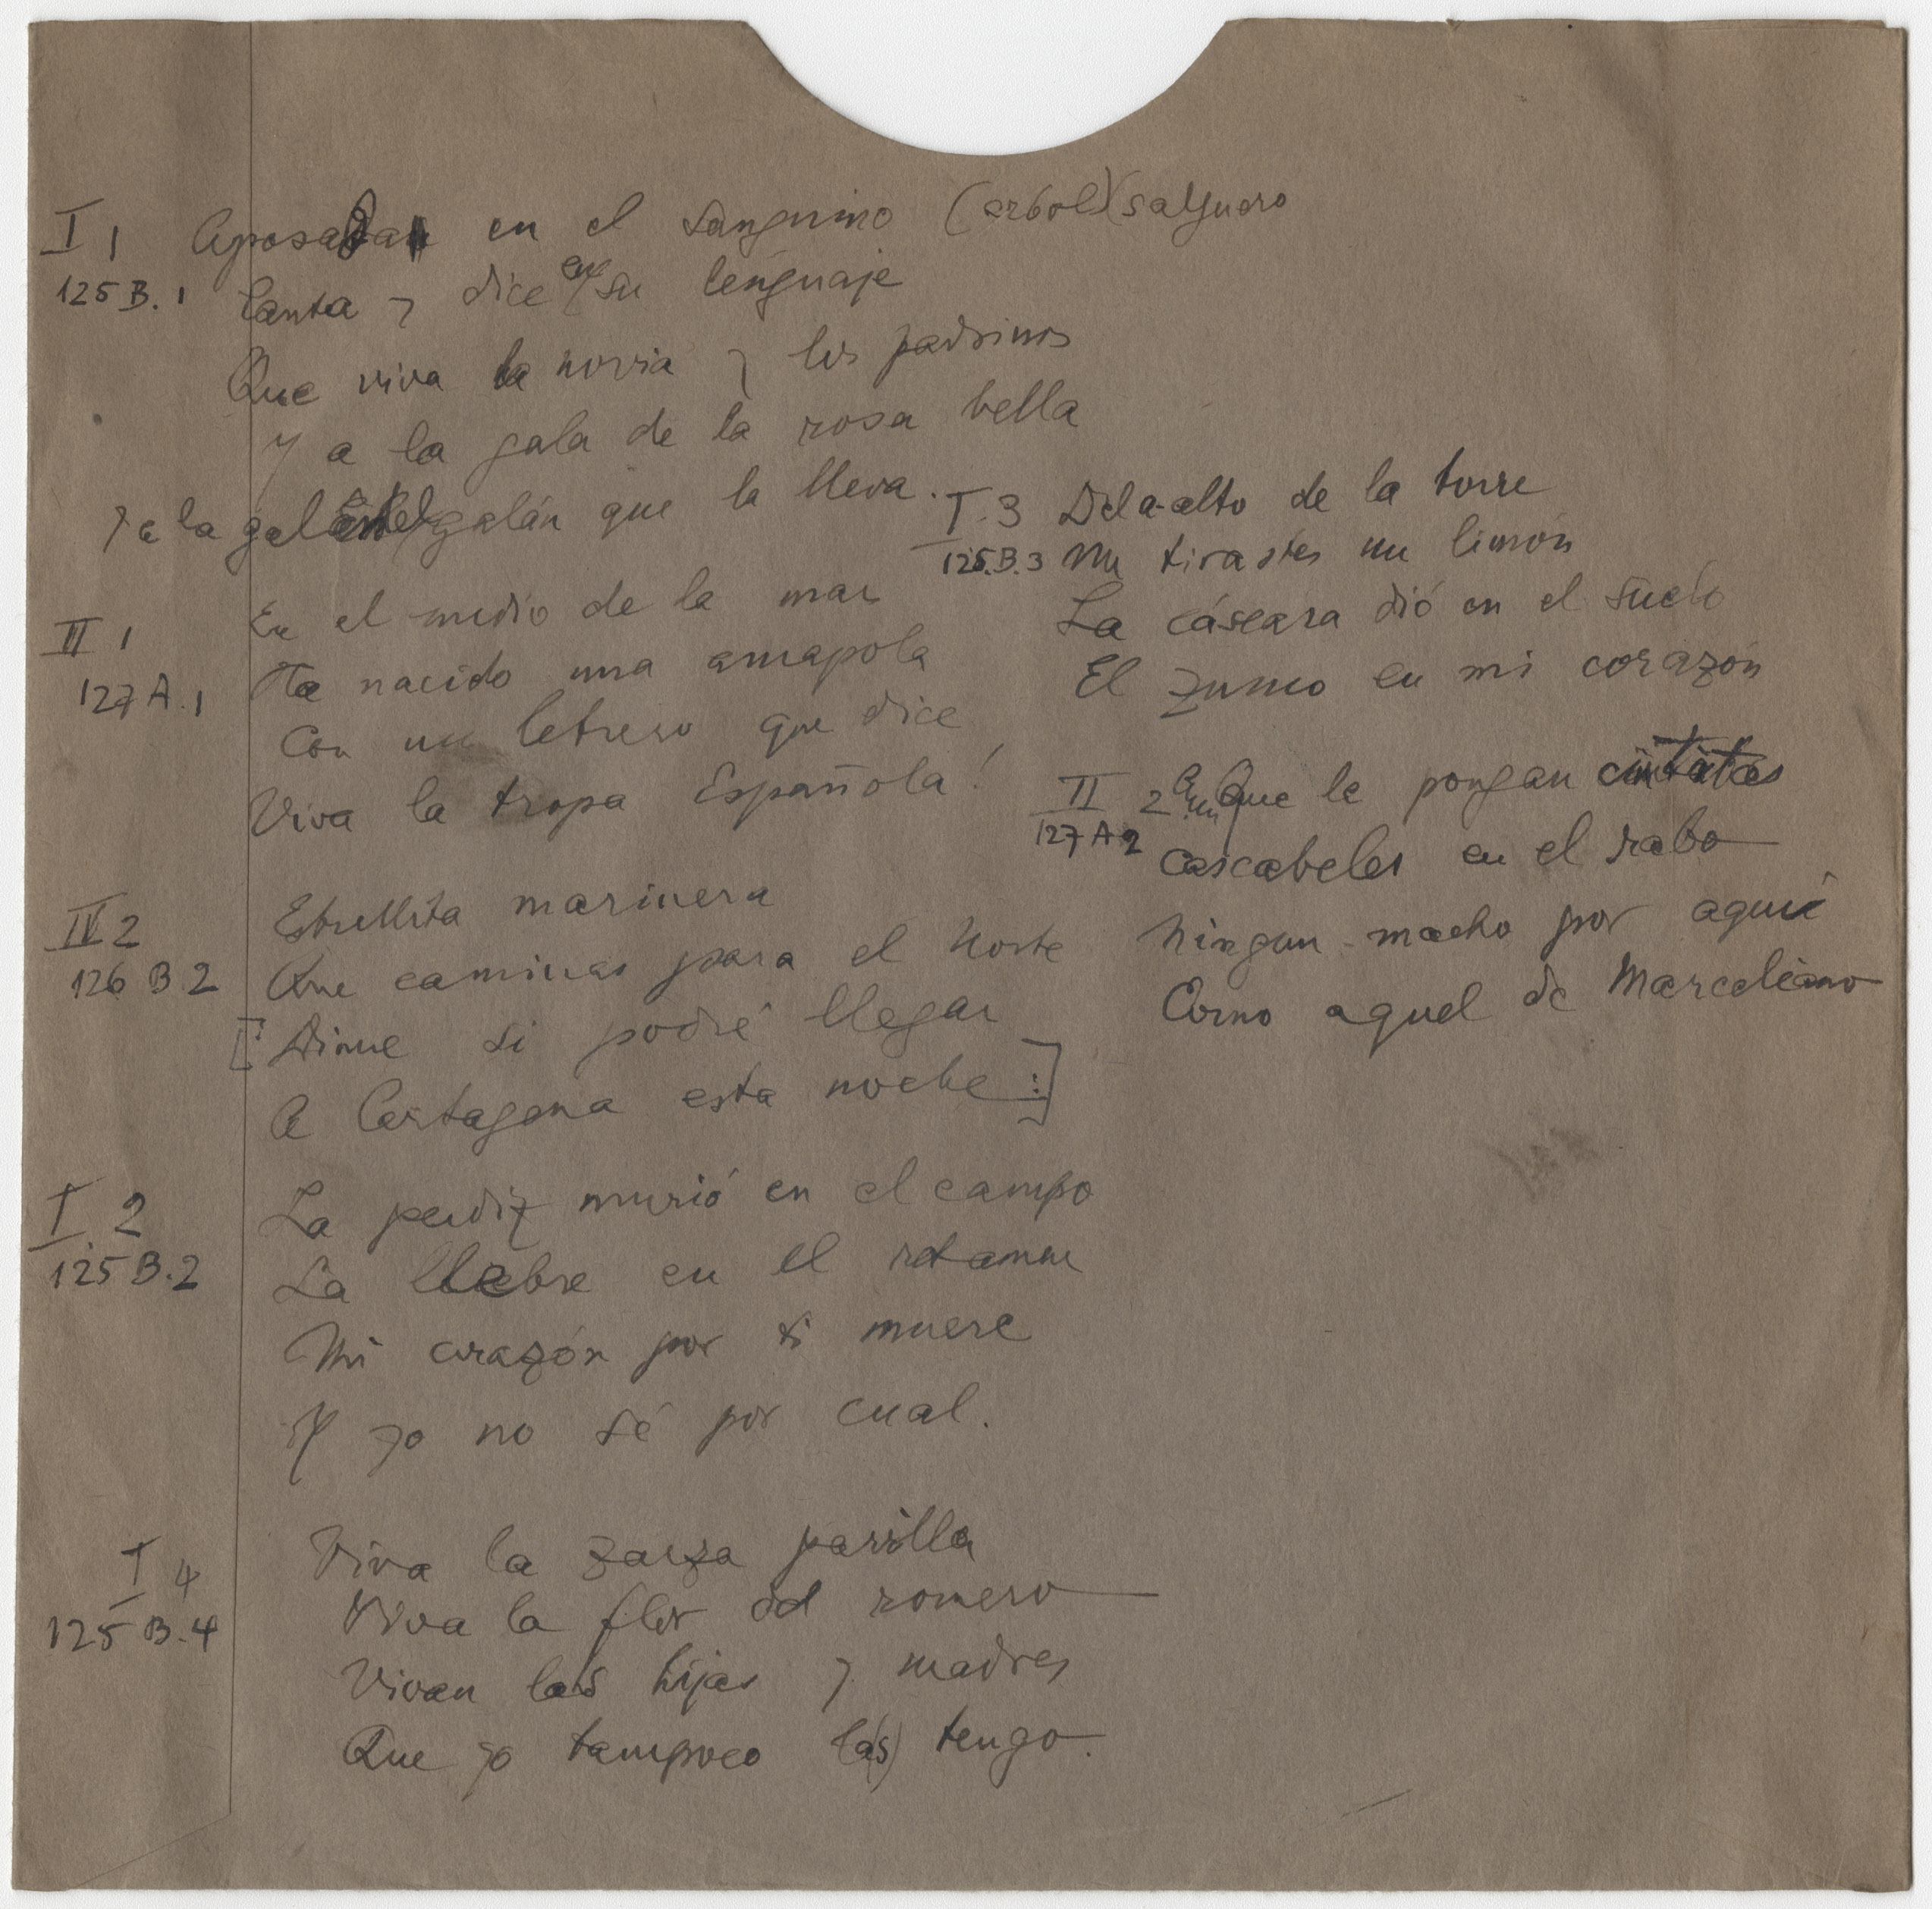 I 1 Aposada en el sanguino (arbol)(salguero
125 B. 1 Canta y dice en su lenguaje
Que viva la novia y los padrinos
Y a la gala de la rosa bella
Y a la gala galán que la lleva.
II 1 En el medio de la mar
127 A. 1 Ha nacido una amapola
Con un letrero que dice
Viva la tropa Española!
IV 2 Estrellita marinera
126 B. 2 Que caminas para el Norte
[: Dime si podré llegar
A Cartagena esta noche :]
I. 2 La perdiz murió en el campo
125 B. 2 La liebre en el
Mi corazón por ti muere
Y yo no sé por cual.
I 4 Viva la zarza parrilla
125 B. 4 Viva la flor del romero
Vivan las hijas y madres
Que yo tampoco las) tengo.
I. 3 De la alto de la torre
125. B. 3 Me tirastes un limón
La cáscara dió en el suelo
El zumo en mi corazón
II 2 Aunque le pongan cintas
127 A 2 cascabeles en el rabo
Ningun macho por aquí
Como aquel de Marceliano